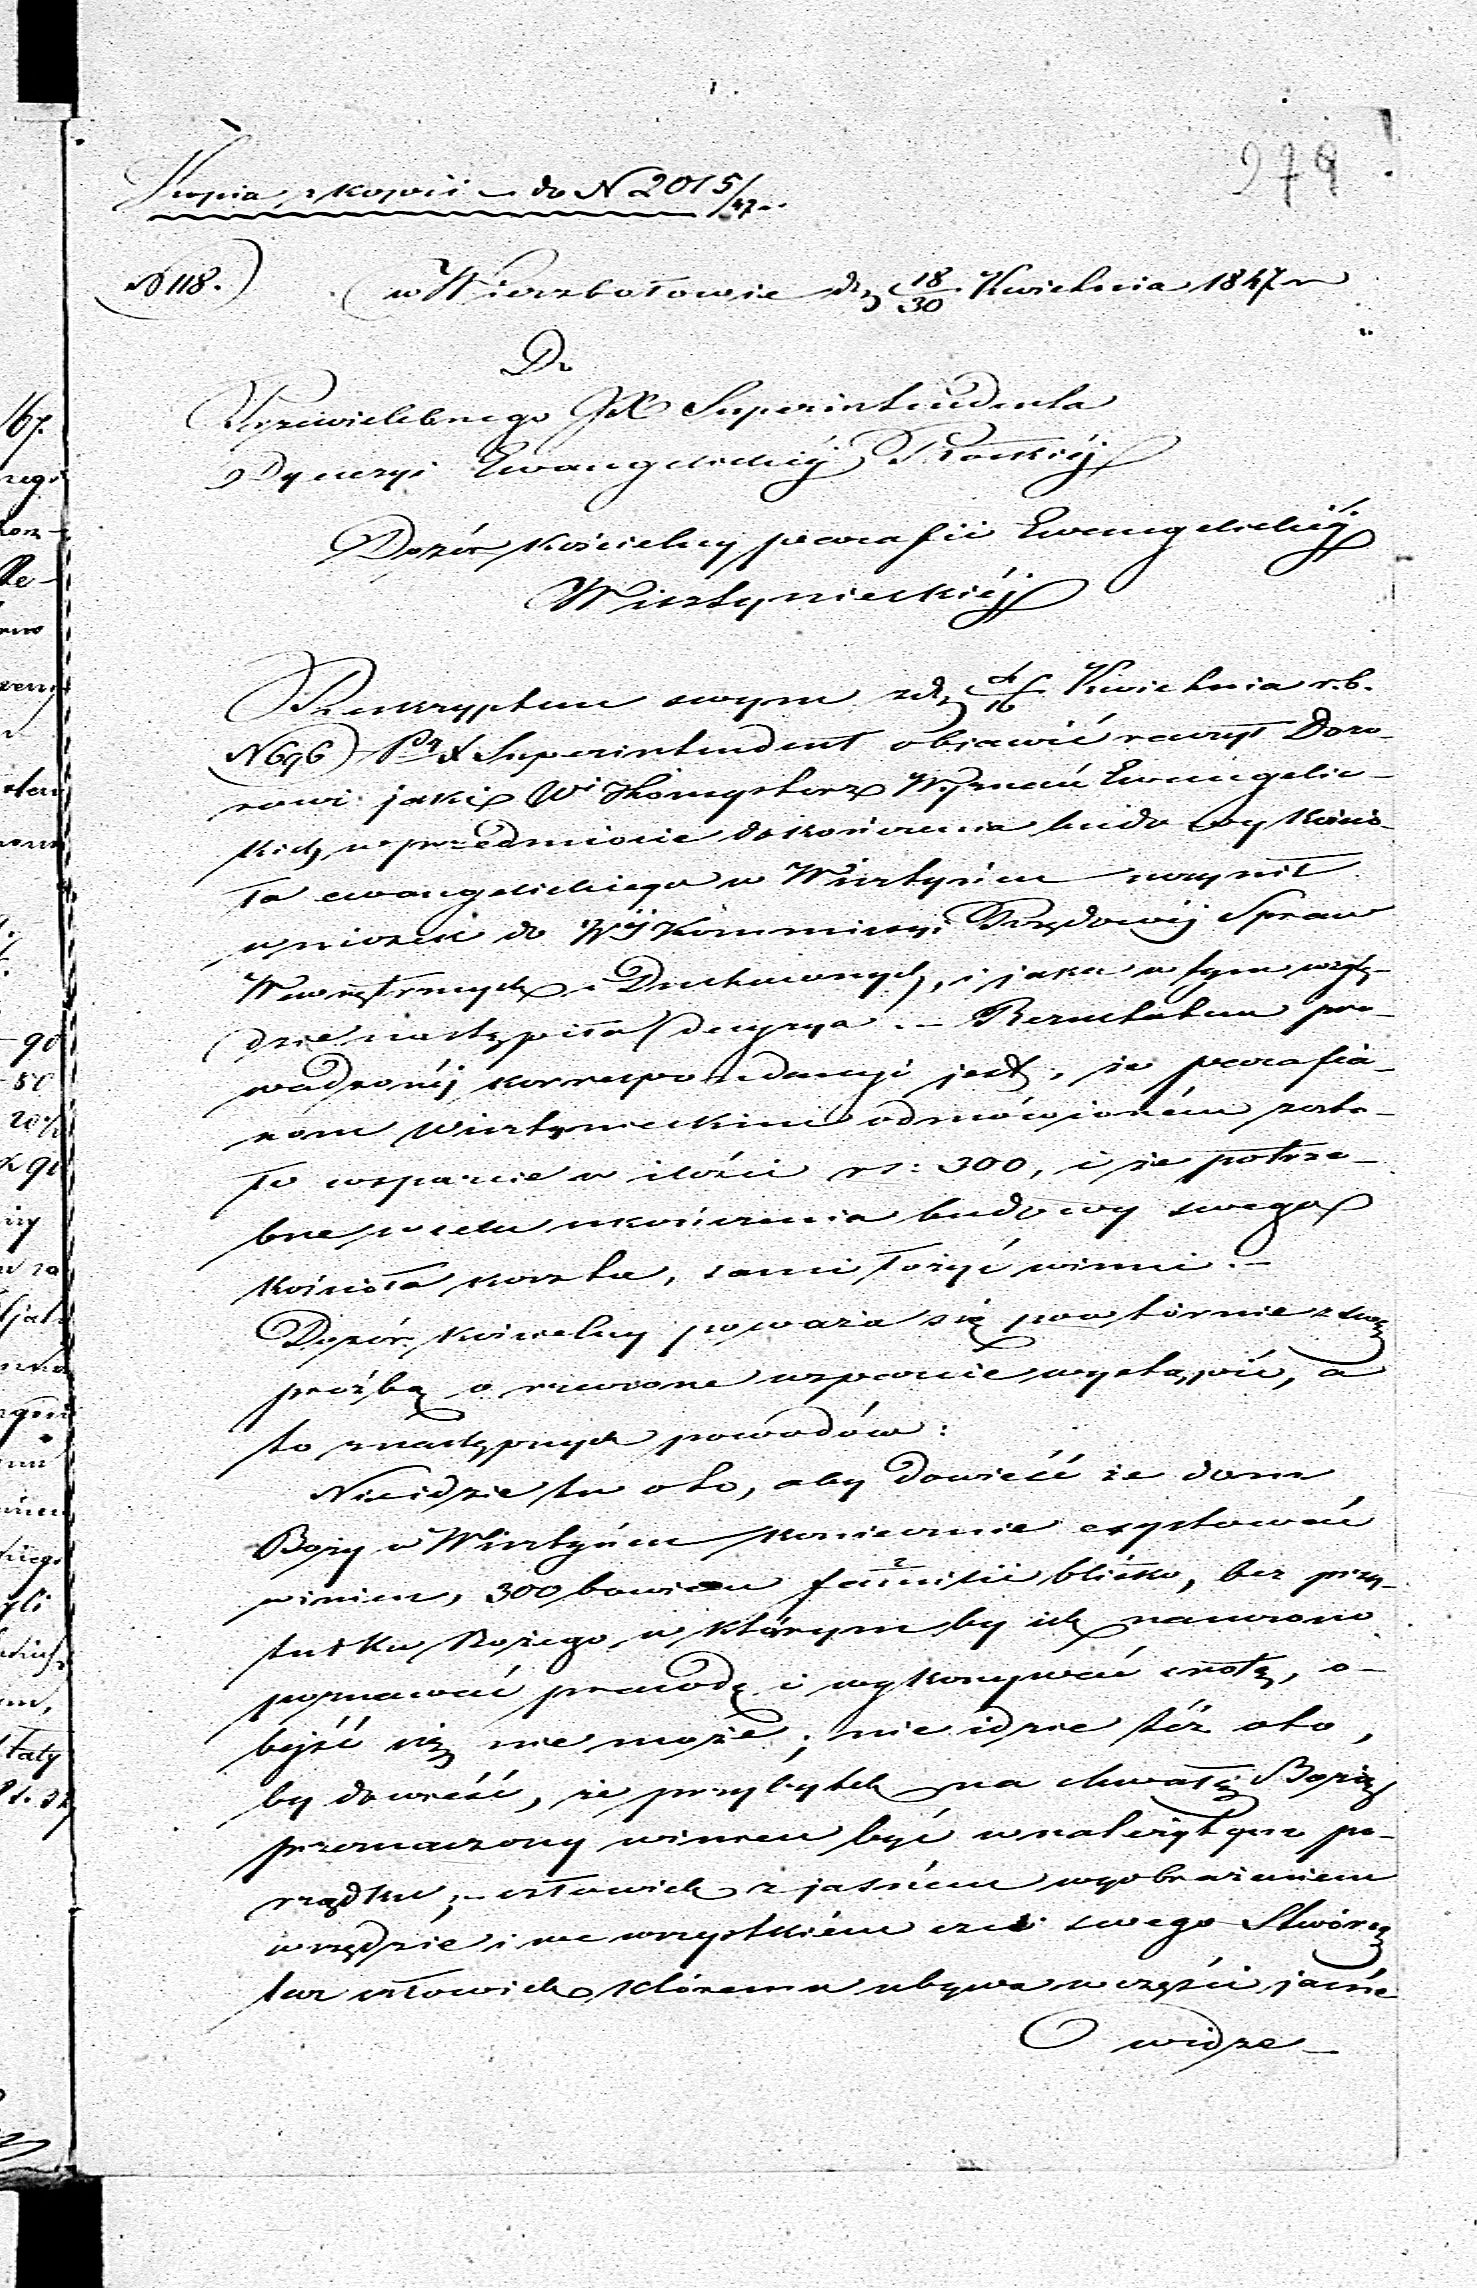 979
Kopia z kopii do N 2015/47
N 118.
w Wierzbołowie d. 18/30 Kwietnia 1847 r
Do
Przewielebnego JX Superintendenta
Dyecezyi Ewangelickiéj Płockiéj
Dozór kościelny parafii Ewangelickiéj
Wisztynieckiéj
Reskryptem swym z d. 4/16 Kwietnia r. b.
N 696 Pr X Superintendent objawić raczył Dozo-
rowi jaki W Konsystorz Wyznań Ewangelic-
kich, w przedmiocie dokończenia budowy kościo-
ła ewangelickiego w Wisztyńcu uczynił
wniosek do Kommissyi Rządowéj Spraw
Wewnętrznych i Duchownych, i jaka w tym wzglę-
dzie nastąpiła decyzya. – Rezultatem pro-
wadzonéj korrespondencyi jest, że parafia-
nom Wisztynieckim odmówioném zosta-
ło wsparcie w ilości rs: 300, i że potrze-
bne w celu ukończenia budowy swego
kościoła koszta, sami łożyć winni. –
Dozór kościelny poważa się powtórnie z swą
prośbą o rzeczone wsparcie wystąpić, a
to z następnych powodów:
Nie idzie tu o to, aby dowieść że dom
Boży w Wisztyńcu koniecznie exystować
winien, 300 bowiem familii blisko, bez przy-
tułku Bożego, w którym by ich nauczono
poznawać prawdę i wykonywać cnotę, o-
bejść się nie może; nie idzie też o to,
by dowieść, że przybytek na chwałę Bożą
przeznaczony winien być w należytym po-
rządku; – człowiek z jasném wyobrażeniem
wszędzie i we wszystkiém czci swego Stwórcę
lecz człowiek, któremu ubywa w części jaśnie
widze-